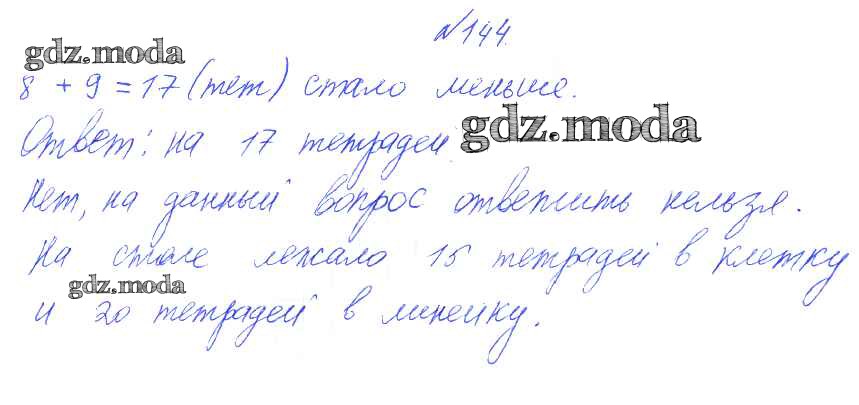 №144.
gdz.moda
8 + 9 = 17 (тет) стало меньше.
Ответ: на 17 тетрадей.
gdz.moda
Нет, на данный вопрос ответить нельзя.
На столе лежало 15 тетрадей в клетку
gdz.moda
и 20 тетрадей в линейку.